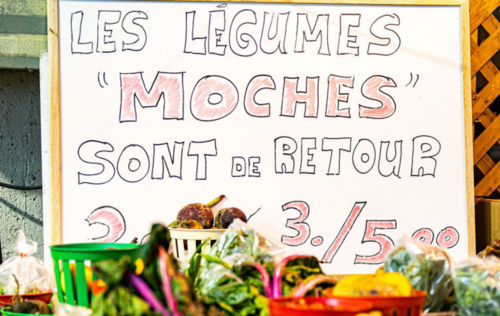 LES LÉGUMES
"MOCHES"
SONT DE RETOUR
3./5.00